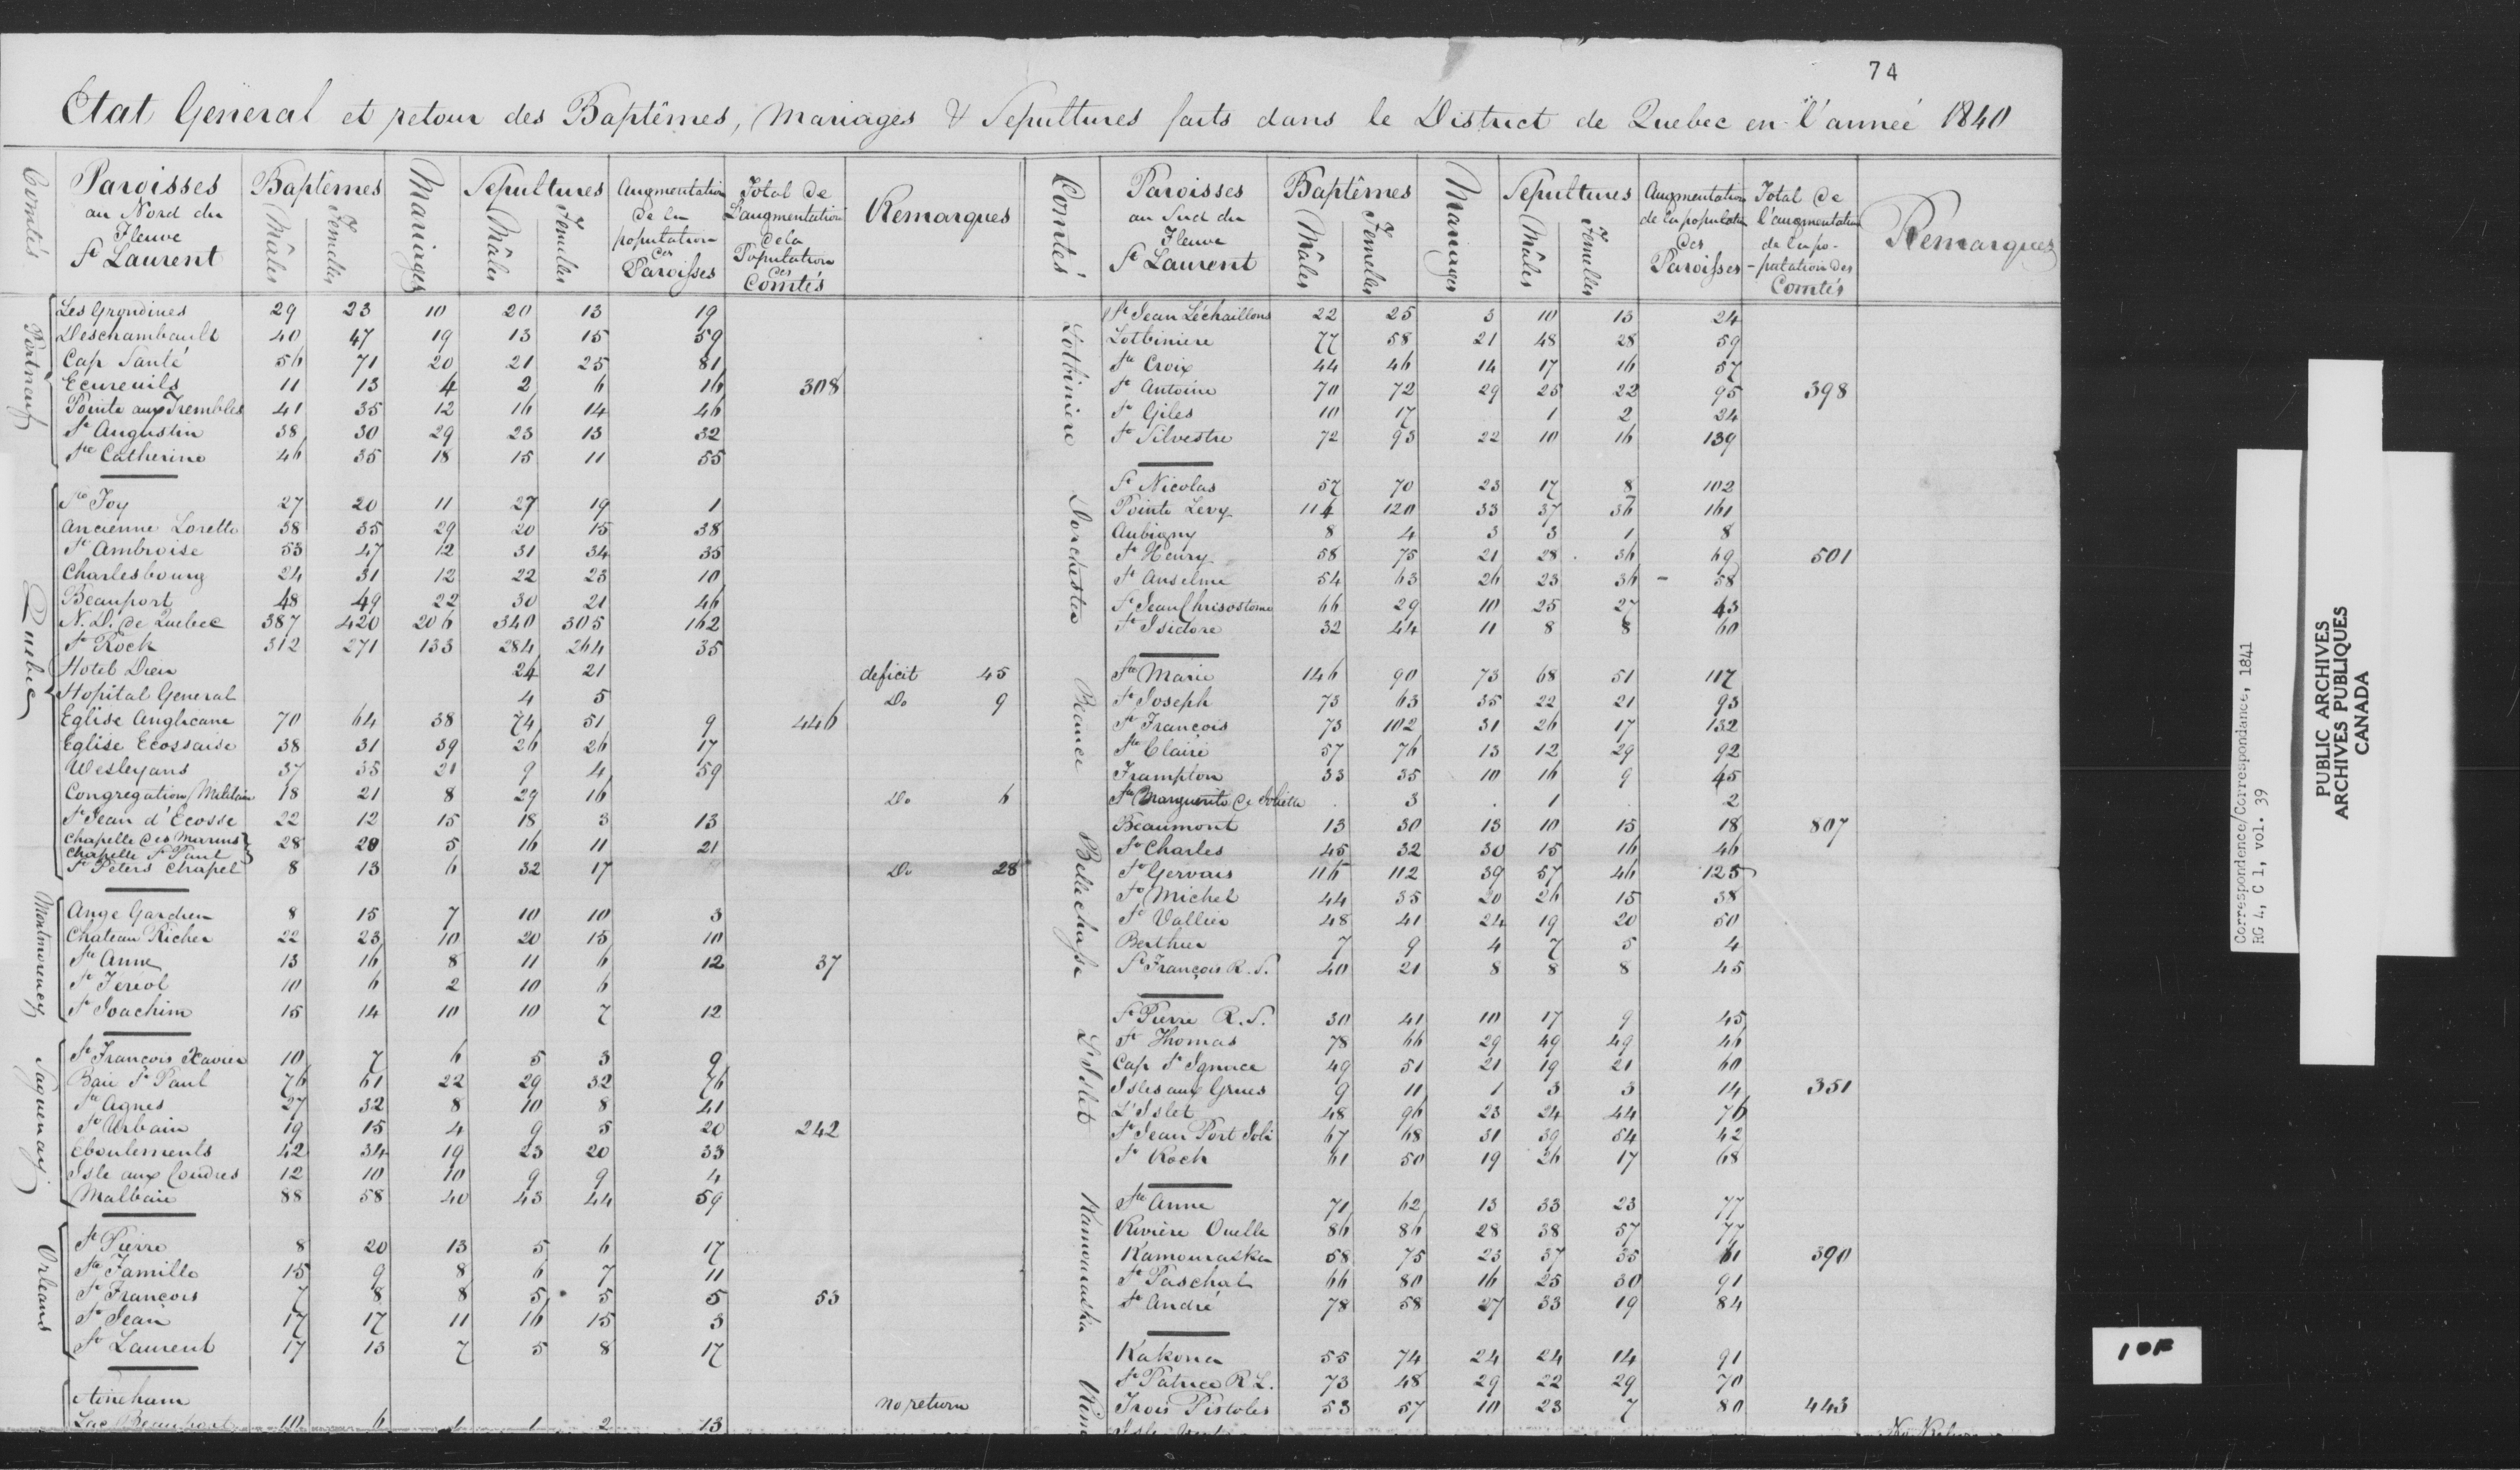 74
Etat General et retour des Baptêmes, Mariages & Sepultures faits dans le District de Quebec en l'année 1840
Comtés Paroisses au Nord du Fleuve St Laurent Baptêmes Mâles Femelles Mariages Sepultures Mâles Femelles Augmentation de la population des Paroisses Total de L'augmentation de la Population des Comtés Remarques
Portneuf
Les Grondines 29 23 10 20 13 19
Deschambault 40 47 19 13 15 59
Cap Santé 56 71 20 21 25 81
Ecureuils 11 13 4 2 6 16 308
Pointe aux Trembles 41 35 12 16 14 46
St Augustin 38 30 29 23 13 32
Ste Catherine 46 35 18 15 11 55
Quebec
Ste Foy 27 20 11 27 19 1
Ancienne Lorette 38 35 29 20 15 38
St Ambroise 53 47 12 31 34 35
Charlesbourg 24 31 12 22 23 10
Beauport 48 49 22 30 21 46
N. D. de Quebec 387 420 206 340 305 162
St Rock 312 271 133 284 264 35
Hotel Dieu 24 21 deficit 45
Hopital General 4 5 Do 9
Eglise Anglicane 70 64 38 74 51 9 446
Eglise Ecossaise 38 31 39 26 26 17
Wesleyans 37 35 21 9 4 59
Congregation Militaire 18 21 8 29 16 Do 6
St Jean d'Ecosse 22 12 15 18 3 13
Chapelle des Marins
Chapelle St Paul 28 20 5 16 11 21
St Peters Chapel 8 13 6 32 17 Do 28
Montmorency
Ange Gardien 8 15 7 10 10 3
Chateau Richer 22 23 10 20 15 10
Ste Anne 13 16 8 11 6 12 37
St Feréol 10 6 2 10 6
St Joachim 15 14 10 10 7 12
Saguenay
St François Xavier 10 7 6 5 3 9
Baie St Paul 76 61 22 29 32 76
Ste Agnes 27 32 8 10 8 41
St Urbain 19 15 4 9 5 20 242
Eboulements 42 34 19 23 20 33
Isle aux Coudres 12 10 10 9 9 4
Malbaie 88 58 40 43 44 59
Orleans
St Pierre 8 20 13 5 6 17
Ste Famille 15 9 8 6 7 11
St François 7 8 8 5 5 5 53
St Jean 17 17 11 16 15 3
St Laurent 17 13 7 5 8 17
Stoneham no return
Lac Beauport 10 6 1 1 2 13
Comtés Paroisses au Sud du Fleuve St Laurent Baptêmes Mâles Femelles Mariages Sepultures Mâles Femelles Augmentation de la population des Paroisses Total de l'augmentation de la po-pulation des Comtés Remarques
Lotbiniere
St Jean Léchaillons 22 25 3 10 13 24
Lotbiniere 77 58 21 48 28 59
Ste Croix 44 46 14 17 16 57
St Antoine 70 72 29 25 22 95 398
St Giles 10 17 1 2 24
St Silvestre 72 93 22 10 16 139
Dorchester
St Nicolas 57 70 23 17 8 102
Pointe Levy 114 120 33 37 36 161
Aubigny 8 4 3 3 1 8
St Henry 58 75 21 28 36 69 501
St Anselme 54 63 26 23 36 - 58
St Jean Chrisostome 66 29 10 25 27 43
St Isidore 32 44 11 8 8 60
Beauce
Ste Marie 146 90 73 68 51 117
St Joseph 73 63 35 22 21 93
St François 73 102 31 26 17 132
Ste Claire 57 76 13 12 29 92
Frampton 33 35 10 16 9 45
Ste Marguerite de Joliette 3 1 2
Bellechasse
Beaumont 13 30 13 10 15 18 807
St Charles 45 32 30 15 16 46
St Gervais 116 112 39 57 46 125
St Michel 44 35 20 26 15 38
St Vallier 48 41 24 19 20 50
Berthier 7 9 4 7 5 4
St François R. S. 40 21 8 8 8 45
L'Islet
St Pierre R. S. 30 41 10 17 9 45
St Thomas 78 66 29 49 49 46
Cap St Ignace 49 51 21 19 21 60
Isles aux Grues 9 11 1 3 3 14 351
L'Islet 48 96 23 24 44 76
St Jean Port Joli 67 68 31 39 54 42
St Roch 61 50 19 26 17 68
Kamouraska
Ste Anne 71 62 13 33 23 77
Rivière Ouelle 86 86 28 38 57 77
Kamouraska 58 75 23 37 35 61 390
St Paschal 66 80 16 25 30 91
St André 78 58 27 33 19 84
Kakona 55 74 24 24 14 91
St Patrice R L. 73 48 29 22 29 70
Trois Pistoles 53 57 10 23 7 80 443
Correspondence/Correspondance, 1841
RG 4, C 1, vol. 39
PUBLIC ARCHIVES
ARCHIVES PUBLIQUES
CANADA